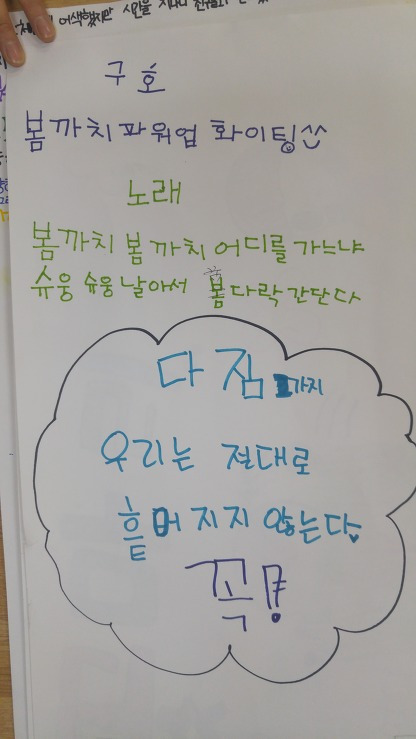 어색했지만
구호
봄까치파워업 화이팅^^
노래
봄까치 봄까치 어디를 가느냐
슈웅 슈웅 날아서 봄다락 간단다
다짐 1가지
우리는 절대로
흩어지지 않는다
꼭!